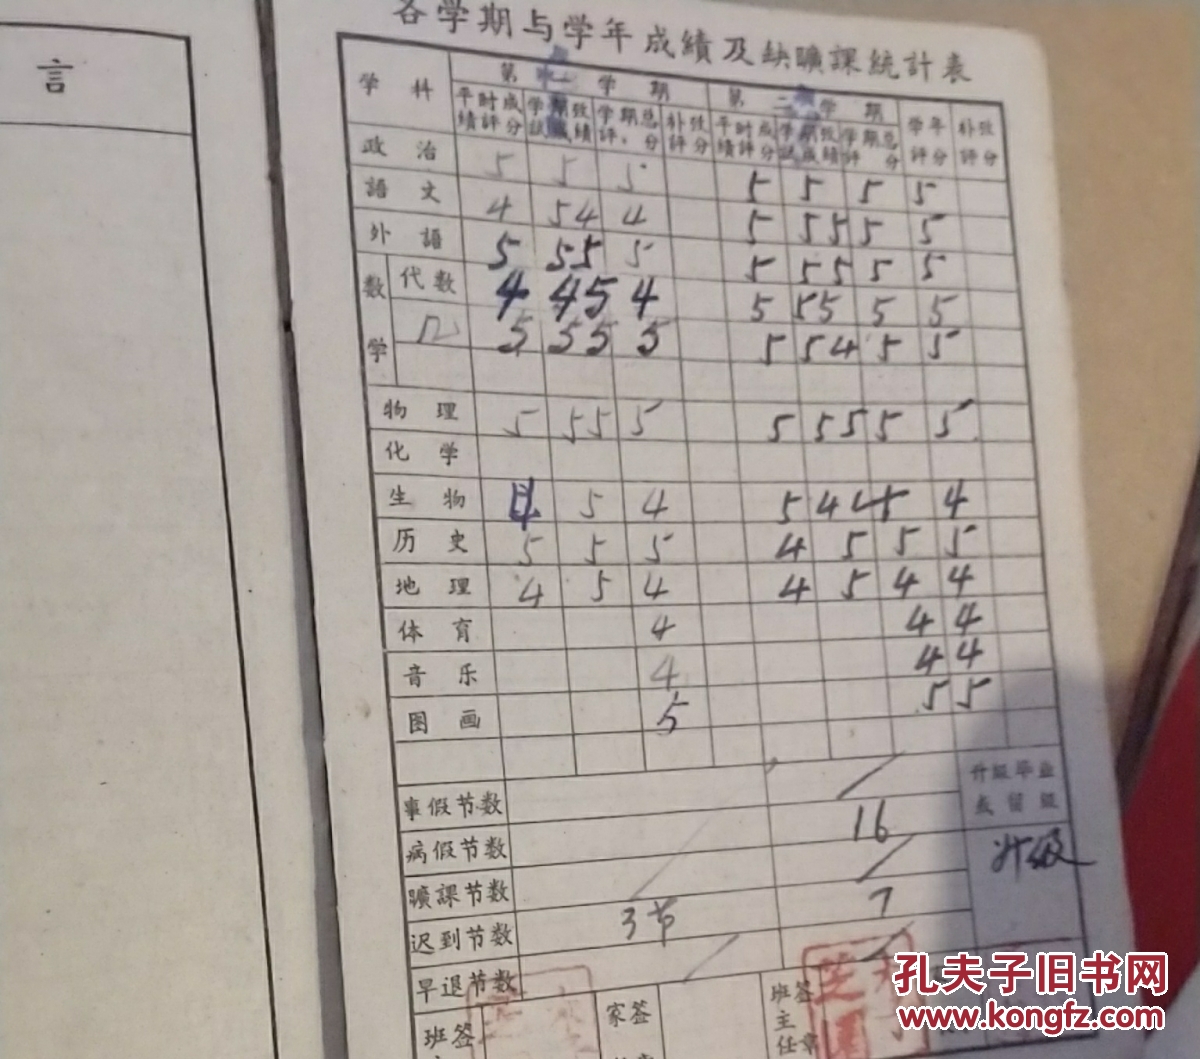 言
各学期与学年成績及缺曠課統計表
学科 第一学期 第二学期 学年評分 补攷評分
平时成績評分 学期攷試成績 学期总評分 补攷評分 平时成績評分 学期攷試成績 学期总評分
政治 5 5 5 5 5 5 5
語文 4 5 4 4 5 5 5 5 5
外語 5 5 5 5 5 5 5 5 5
数学 代数 4 4 5 4 5 5 5 5 5
几 5 5 5 5 5 5 4 5 5
物理 5 5 5 5 5 5 5 5 5
化学
生物 4 5 4 5 4 4 5 4
历史 5 5 5 4 5 5 5
地理 4 5 4 4 5 4 4
体育 4 4 4
音乐 4 4 4
图画 5 5 5
事假节数 升級毕业或留級
病假节数 16 升级
曠課节数
迟到节数 3节 7
早退节数
班主 签 家 签 班主任 签章
孔夫子旧书网
www.kongfz.com